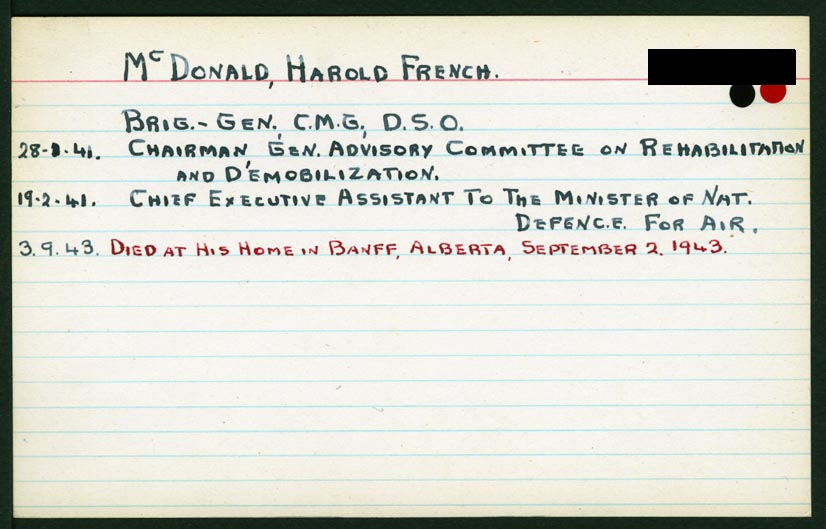 Mc DONALD, HAROLD FRENCH.
BRIG.- GEN., C.M.G., D.S.O.
28-1-41. CHAIRMAN, GEN. ADVISORY COMMITTEE ON REHABILITATION
AND D'EMOBILIZATION.
19-2-41. CHIEF EXECUTIVE ASSISTANT TO THE MINISTER OF NAT.
DEFENCE. FOR AIR.
3.9.43. DIED AT HIS HOME IN BANFF, ALBERTA, SEPTEMBER 2, 1943.